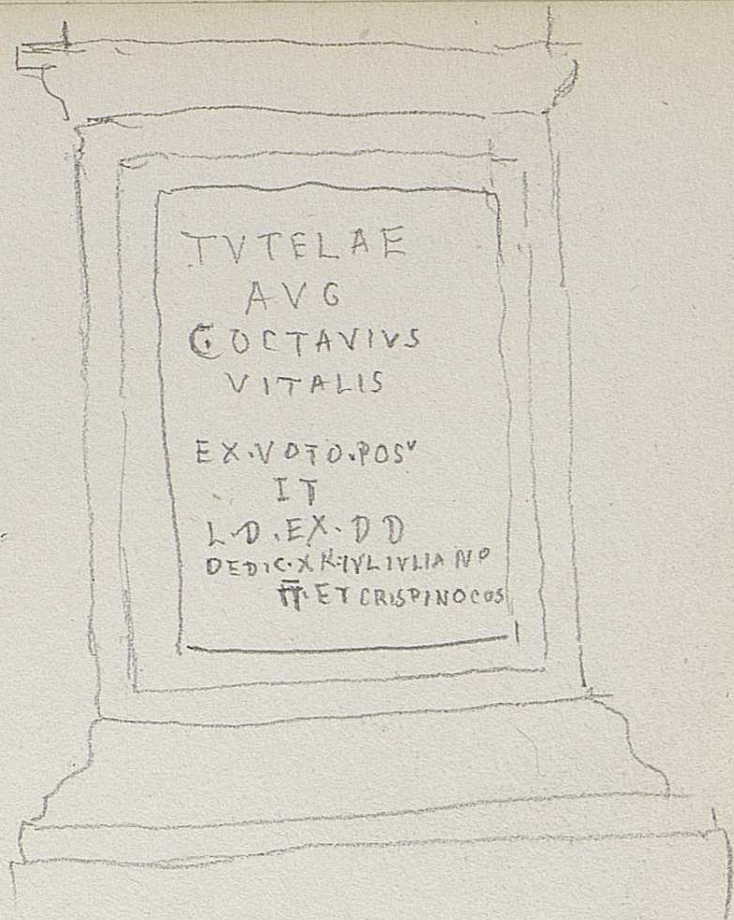 TVTELAE
AVG
C OCTAVIVS
VITALIS
EX·VOTO·POSV
IT
L·D·EX·DD
DEDIC·X K·IVLIVLIANO
II·ET CRISPINOCOS